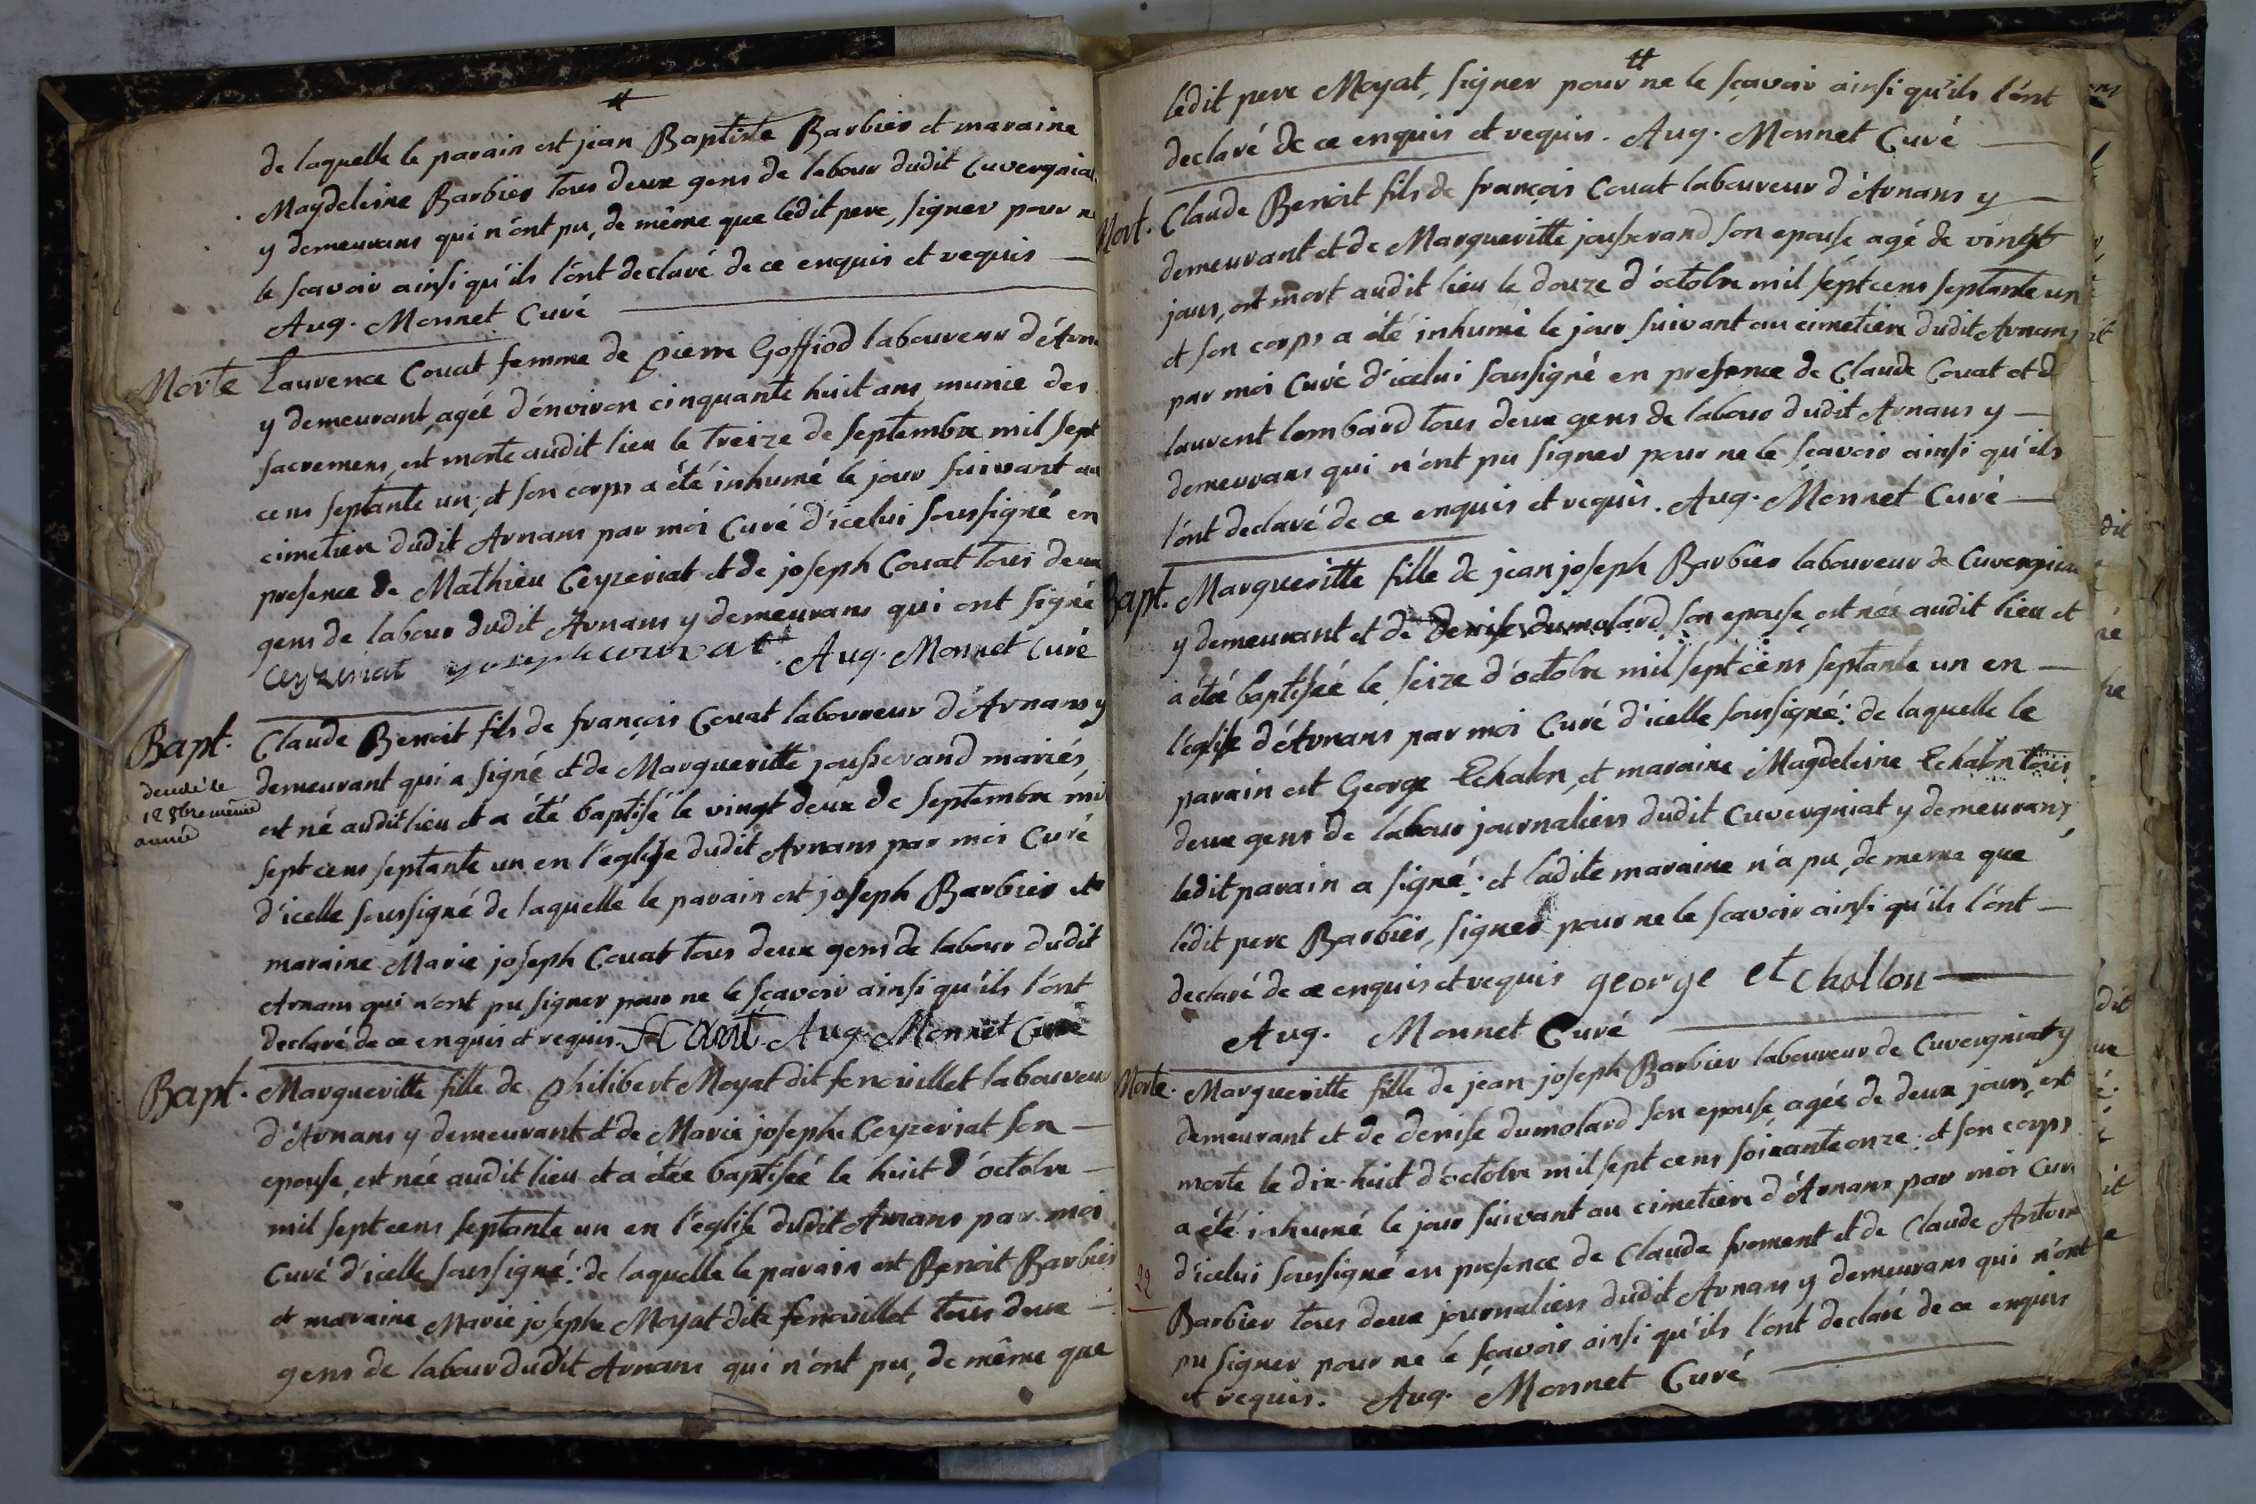 de laquelle le parain est jean Baptiste Barbier et maraine
Magdeleine Barbier tous deux gens de labour dudit Cuvergnia
y demeurans qui n'ont pu, de même que ledit pere, signer pour ne
le scavoir ainsi qu'ils l'ont declaré de ce enquis et requis
Aug. Monnet Curé
Morte Laurence Couat femme de pierre Goffiod laboureur d'Arna
y demeurant, ageé d'environ cinquante huit ans, munie des
sacremens, est morte audit lieu le treize de septembre mil sept
cens septante un; et son corps a été inhumé le jour suivant au
cimetiere dudit Arnans par moi Curé d'icelui soussigné en
presence de Mathieu Ceyzeriat et de joseph Couat tous deux
gens de labour dudit Arnans y demeurans qui ont signé
Ceyzeriat Aug. Monnet Curé
Bapt. Claude Benoit fils de françois Couat laboureur d'Arnans y
demeurant qui a signé et de Margueritte jousserand mariés,
decedé le
12 8bre même
année
est né audit lieu et a été baptisé le vingt deux de septembre mil
sept cens septante un en l'eglise dudit Arnans par moi Curé
d'icelle soussigné de laquelle le parain est joseph Barbier et
maraine Marie joseph Couat tous deux gens de labour dudit
Arnans qui n'ont pu signer pour ne le scavoir ainsi qu'ils l'ont
declaré de ce enquis et requis. Aug. Monnet Curé
Bapt. Margueritte fille de philibert Moyat dit fenouillet laboureur
d'Arnans y demeurant et de Marie josephe Ceyzeriat son
epouse, est née audit lieu et a étée baptiseé le huit d'octobre
mil sept cens septante un en l'eglise dudit Arnans par moi
Curé d'icelle soussigné: de laquelle le parain est Benoit Barbier
et maraine Marie josephe Moyat dite fenouillet tous deux
gens de labour dudit Arnans qui n'ont pu, de même que
ledit pere Moyat, signer pour ne le scavoir ainsi qu'ils l'ont
declaré de ce enquis et requis. Aug. Monnet Curé
Mort. Claude Benoit fils de françois Couat laboureur d'Arnans y
demeurant et de Margueritte jousserand son epouse agé de vingt
jours, est mort audit lieu le douze d'octobre mil sept cens septante un
et son corps a été inhumé le jour suivant au cimetiere dudit Arnans
par moi Curé d'icelui soussigné en presence de Claude Couat et d
laurent lombard tous deux gens de labour dudit Arnans y
demeurans qui n'ont pu signer pour ne le scavoir ainsi qu'ils
l'ont declaré de ce enquis et requis. Aug. Monnet Curé
Bapt. Margueritte fille de jean joseph Barbier laboureur de Cuvergnia
y demeurant et de Denise dumolard son epouse, est neé audit lieu et
a étée baptiseé le seize d'octobre mil sept cens septante un en
l'eglise d'Arnans par moi Curé d'icelle soussigné: de laquelle le
parain est George Echalon, et maraine Magdeleine Echalon tous
deux gens de labour journaliers dudit Cuvergniat y demeurans,
ledit parain a signé: et ladite maraine n'a pu, de meme que
ledit pere Barbier, signer pour ne le scavoir ainsi qu'ils l'ont
declaré de ce enquis et requis george etchallon
Aug. Monnet Curé
Morte. Margueritte fille de jean joseph Barbier laboureur de Cuvergniat y
demeurant et de denise dumolard son epouse, agée de deux jours, est
morte le dix-huit d'octobre mil sept cens soixante onze: et son corps
a été inhumé le jour suivant au cimetiere d'Arnans par moi Curé
d'icelui soussigné en presence de Claude froment et de Claude Antoine
22
Barbier tous deux journaliers dudit Arnans y demeurans qui n'ont
pu signer pour ne le scavoir ainsi qu'ils l'ont declaré de ce enquis
et requis. Aug. Monnet Curé